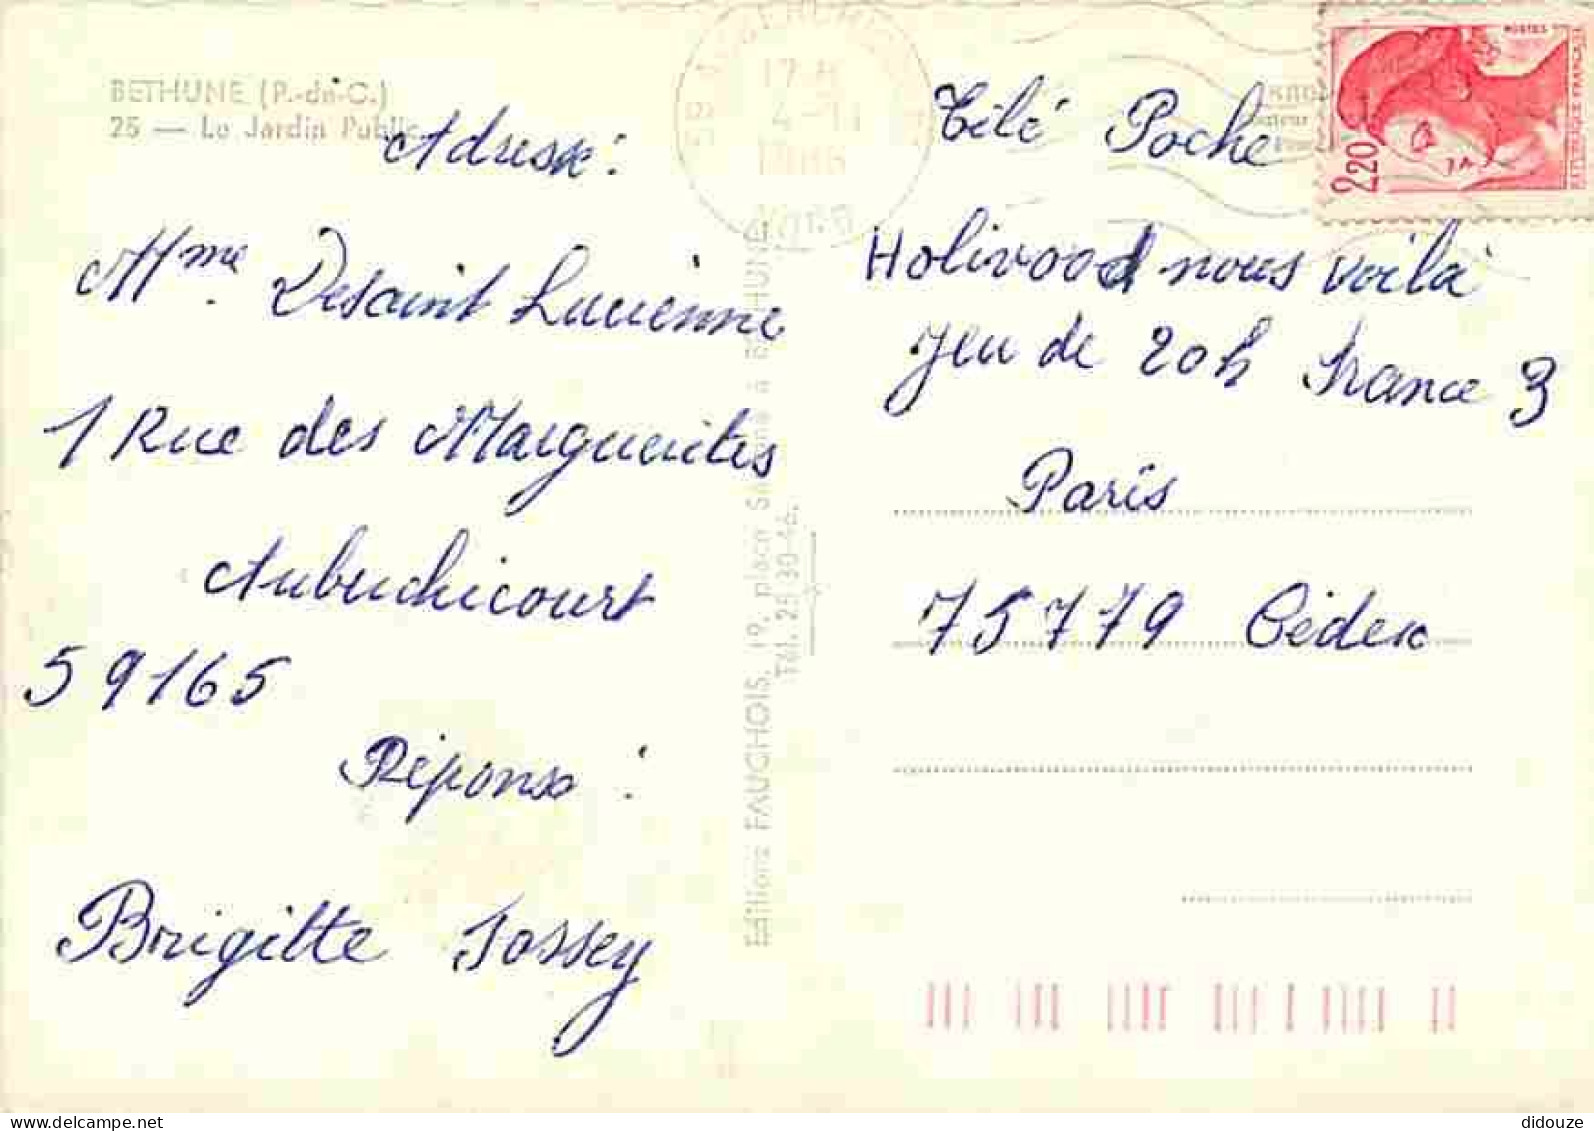 BETHUNE (P.-de-C.)
25 — Le Jardin Public
Adresse :
Mme Desaint Lucienne
1 Rue des Marguerites
Aubuchicourt
59165
Réponse :
Brigitte Jossey
Editions FAUCHOIS, 19, place
à BETHUNE
Tél. 25.30-46.
17-H
4-11
NORD
POSTES
2,20
Télé Poche
Holivood nous voilà
Jeu de 20h France 3
Paris
75779 Cédex
didouze